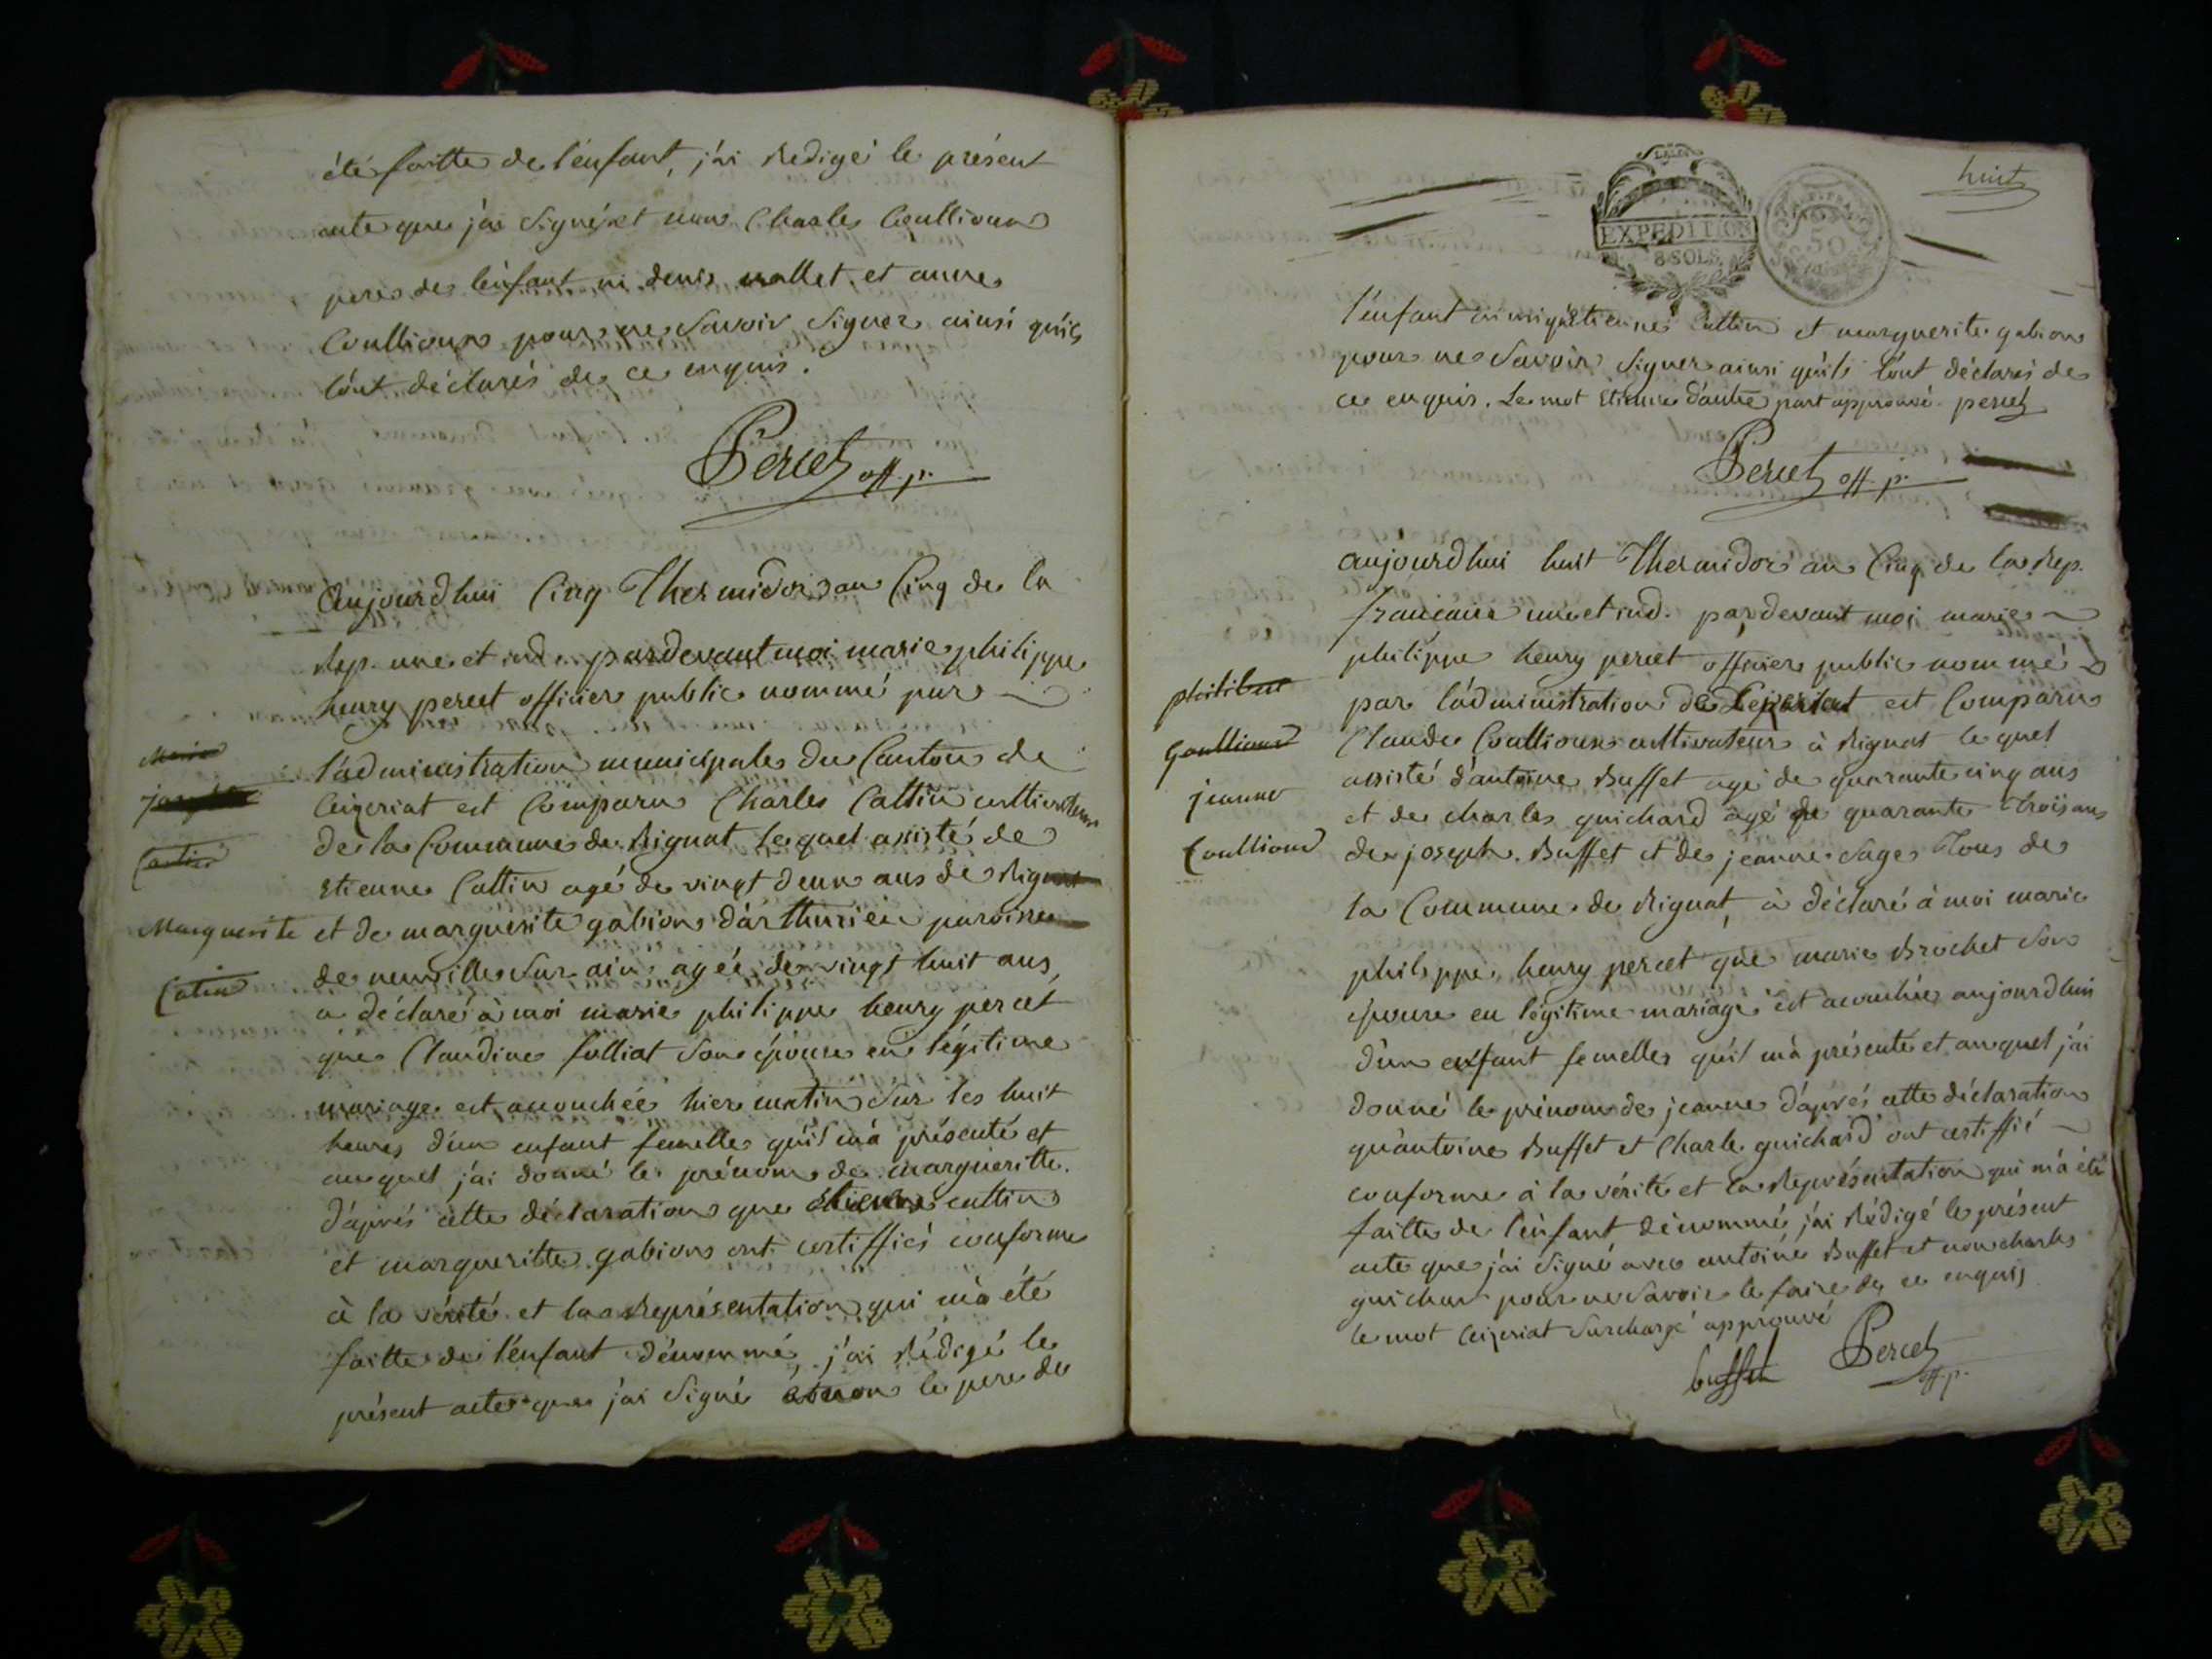 été faitte de l'enfant, j'ai Redigé le présent
acte que j'ai Signé, et non Charles Coullioux
pere de l'enfant ni denis mollet, et anne
Coullioux pour ne Savoir Signer ainsi qu'ils
l'ont déclarés de ce enquis.
Percet off. p.
Aujourd'hui Cinq Thermidor an Cinq de la
Rep. une et ind. pardevant moi marie philippe
henry percet officier public nommé par
l'administration municipale du Canton de
Ceizeriat est Comparu Charles Cattin cultivateur
de la Commune de Rignat lequel assisté de
Etienne Cattin agé de vingt deux ans de Rignat
et de marguerite gabion d'arthurieu paroisse
de neuville Sur ain agée de vingt huit ans,
a déclaré à moi marie philippe henry percet
que Claudine folliat Son épouse en légitime
mariage est accouchée hier matin Sur les huit
heures d'un enfant femelle qu'il m'a présenté et
auquel j'ai donné le prénom de margueritte.
d'après cette déclaration que Etienne cattin
et margueritte gabion ont certiffiés conforme
à la vérité et la Représentation qui m'a été
faitte de l'enfant dénommé, j'ai Rédigé le
présent acte que j'ai Signé et non le pere de
Marie
Cattin
Marguerite
Catin
huit
EXPEDITION
8 SOLS.
50
l'enfant ni etienne Cattin et marguerite gabion
pour ne Savoir Signer ainsi qu'ils l'ont déclarés de
ce enquis. Le mot Etienne d'autre part approuvé. percet
Percet off. p.
aujourd'hui huit Thermidor an Cinq de la Rep.
francaise une et ind. pardevant moi marie
philippe henry percet officier public nommé
par l'administration de Ceizeriat est Comparu
Claude Coullioux cultivateur à Rignat le quel
assisté d'antoine Buffet agé de quarante cinq ans
et de charles guichard agé de quarante trois ans
de joseph Buffet et de jeanne Sage Tous de
la Commune de Rignat, à déclaré à moi marie
philippe henry percet que marie Brochet Son
épouse en légitime mariage est accouchée aujourd'hui
d'un enfant femelle qu'il m'a présenté et auquel j'ai
donné le prénom de jeanne d'après cette déclaration
qu'antoine Buffet et Charle guichard ont certiffié
conforme à la vérité et la Représentation qui m'a été
faitte de l'enfant dénommé, j'ai Rédigé le présent
acte que j'ai Signé avec antoine Buffet et non charles
guichard pour ne Savoir le faire de ce enquis
le mot Ceizeriat Surchargé approuvé
buffet Percet
off. p.
philibert
Goullioud
jeanne
Coullioud